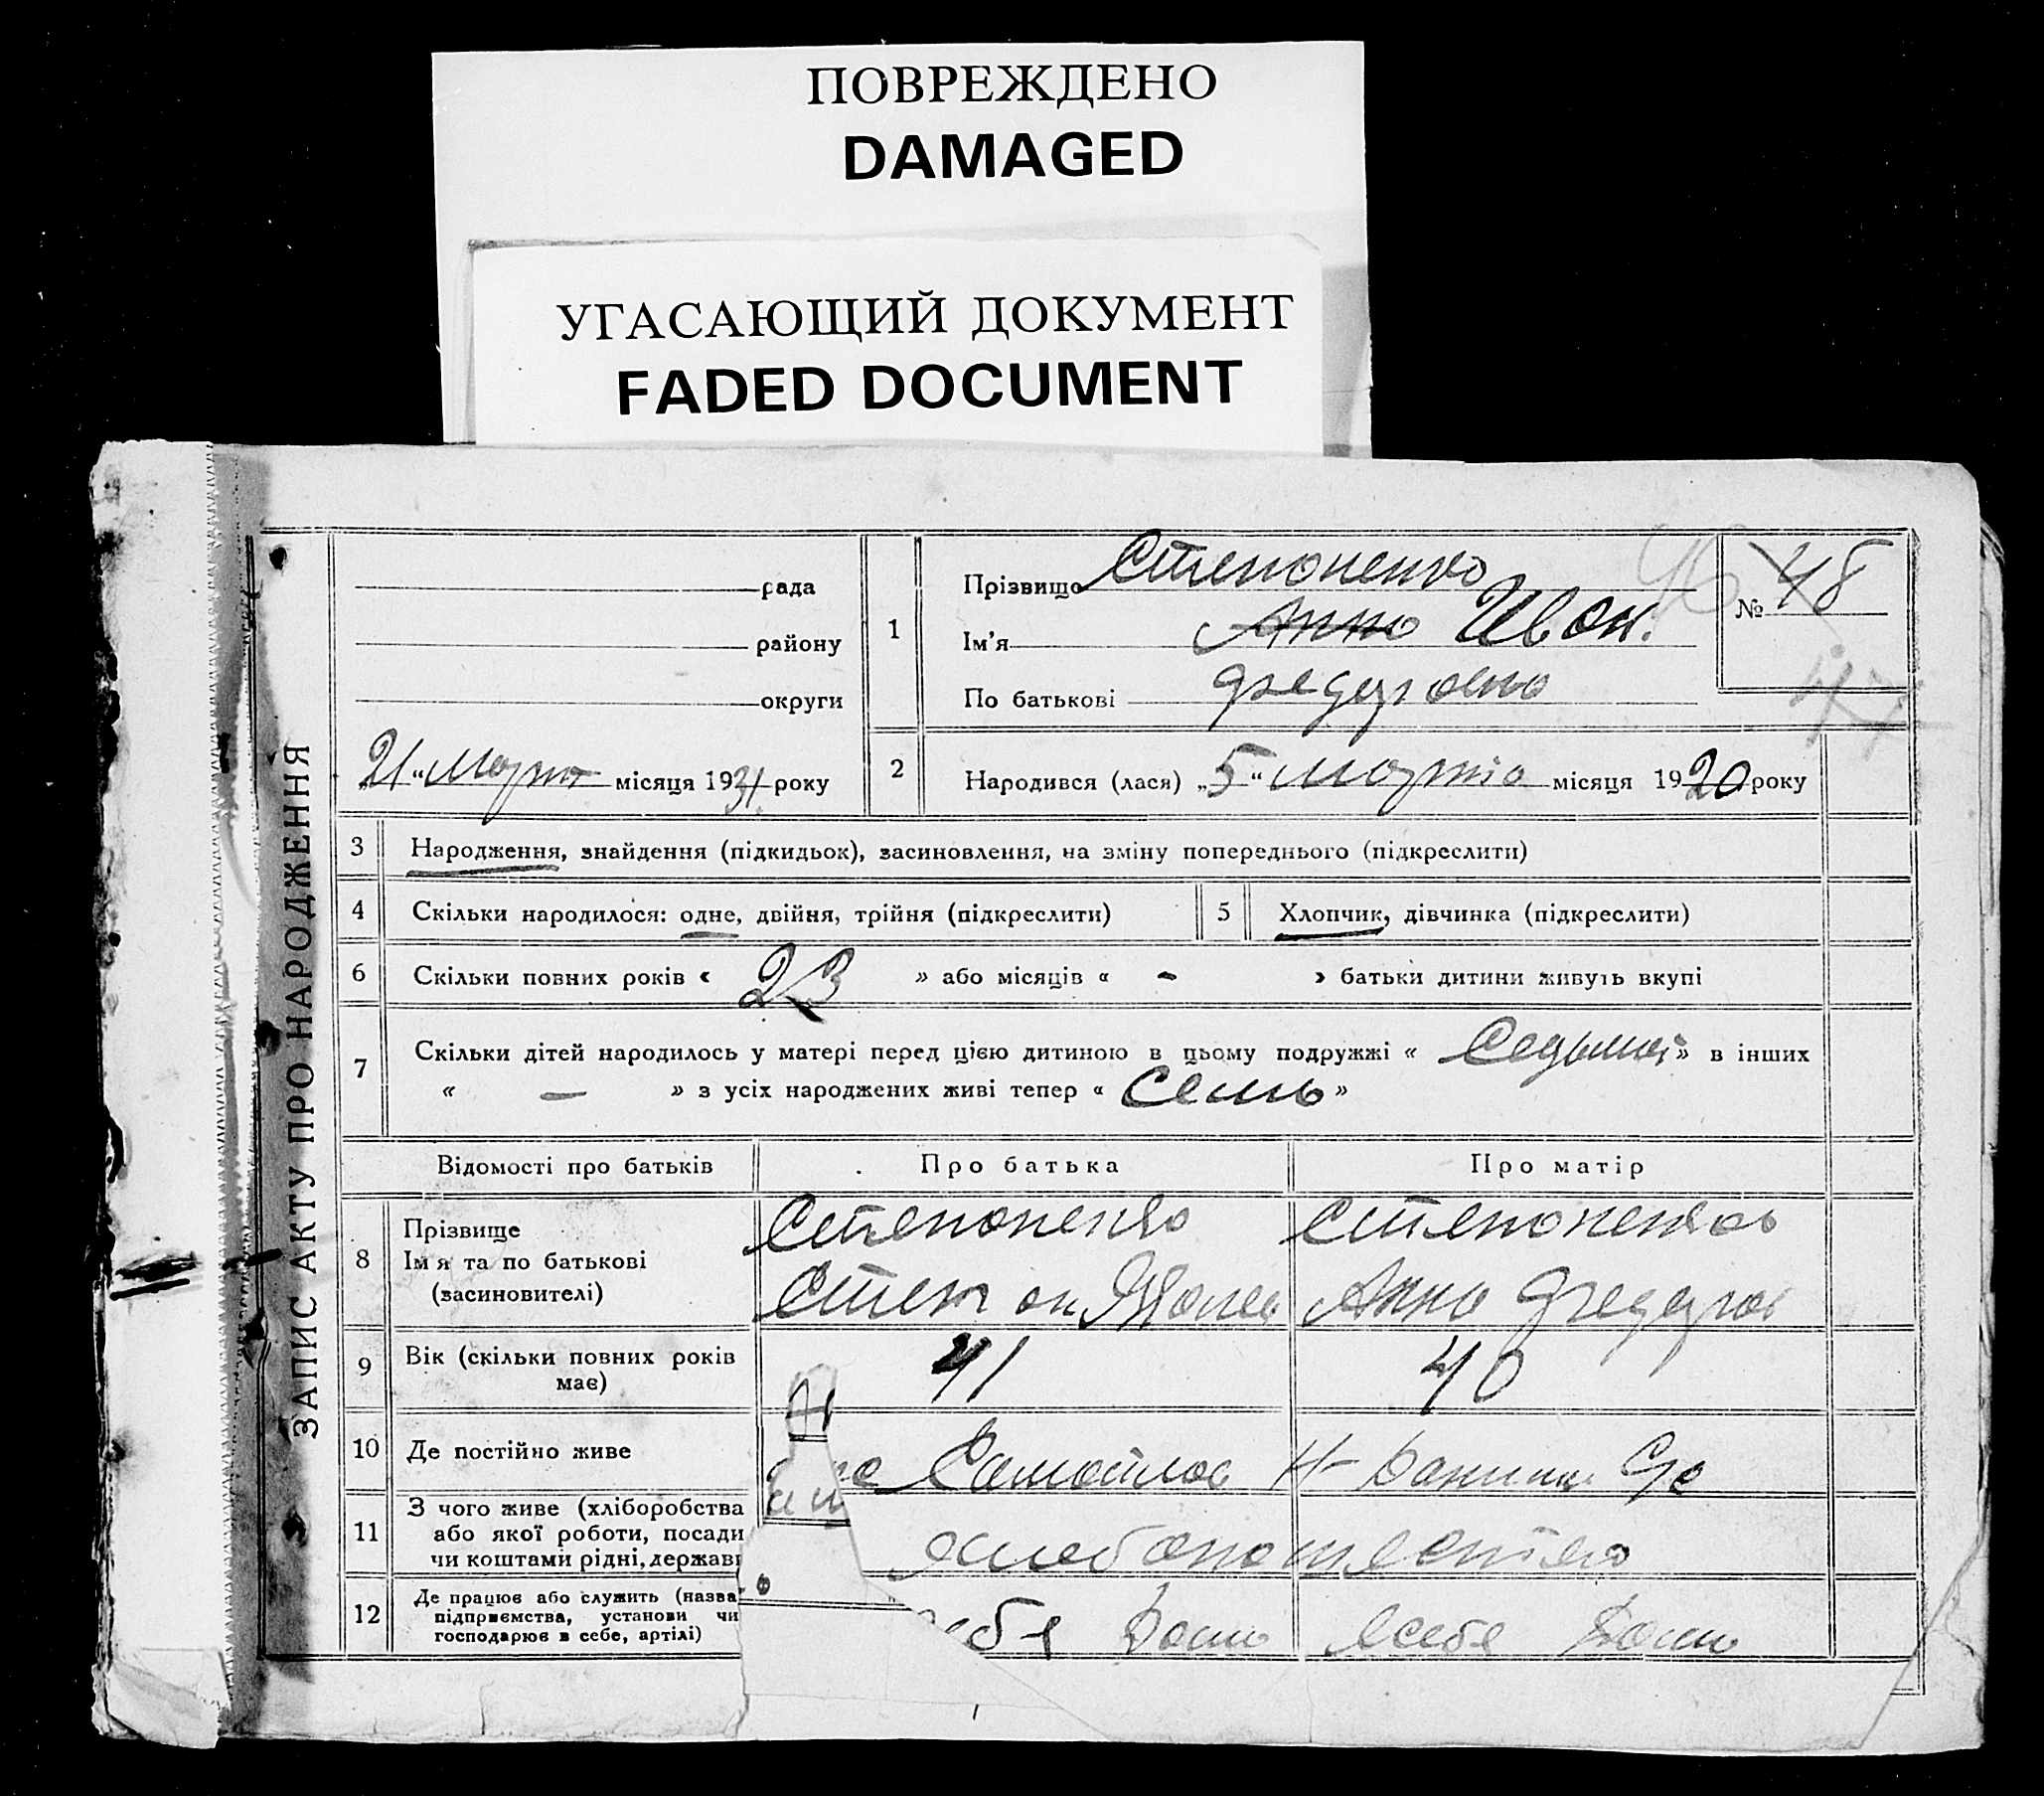 ПОВРЕЖДЕНО
DAMAGED
УГАСАЮЩИЙ ДОКУМЕНТ
FADED DOCUMENT
ЗАПИС АКТУ ПРО НАРОДЖЕННЯ
рада
району
округи
„21“ Март місяця 1931 року
1
Прізвище Степоненко
Ім’я Анна Иван.
По батькові
46
№ 48
47
2
Народився (лася) „5“ Марта місяця 1920 року
3 Народження, знайдення (підкидьок), засиновлення, на зміну попереднього (підкреслити)
4 Скільки народилося: одне, двійня, трійня (підкреслити)
5 Хлопчик, дівчинка (підкреслити)
6 Скільки повних років « 23 » або місяців « - » батьки дитини живуть вкупі
7 Скільки дітей народилось у матері перед цією дитиною в цьому подружжі « » в інших
« — » з усіх народжених живі тепер « Семь »
Відомості про батьків
Про батька
Про матір
8
Прізвище
Імя та по батькові
(засиновителі)
Степоненко
Степан
Степоненко
Анна
9
Вік (скільки повних років
має)
41
40
10 Де постійно живе
11
З чого живе (хліборобства
або якої роботи, посади
чи коштами рідні, держав
12
Де працює або служить (назва
підприємства, установи чи
господарює в себе, артілі)
себя Дома